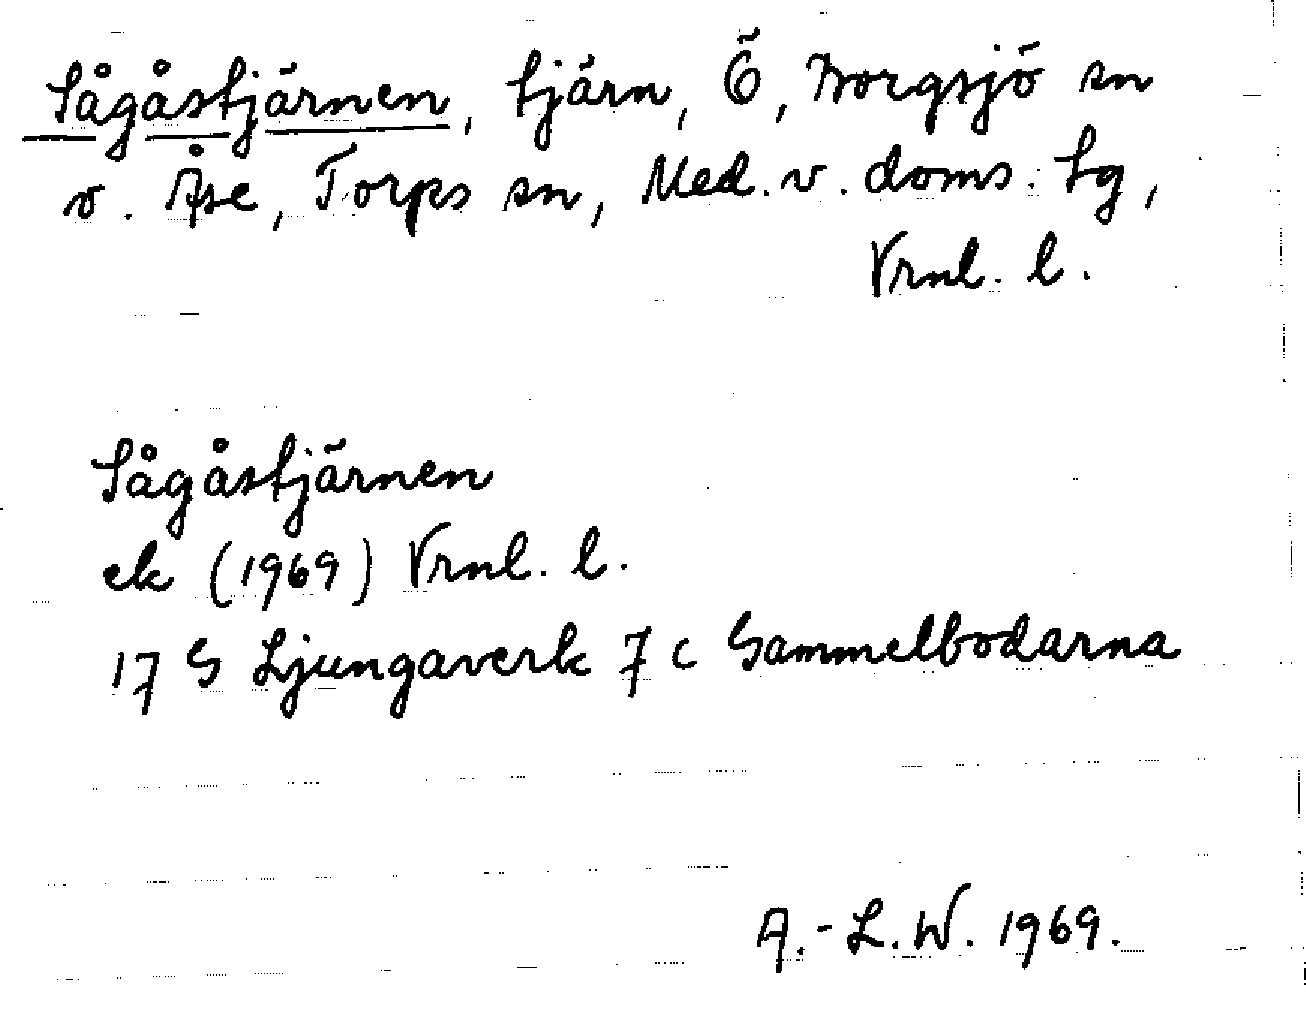 Sågåstjärnen, tjärn, Ö, Borgsjö sn
o. Åse, Torps sn, Med. v. doms. tg,
Vrnl. l.
Sågåstjärnen
ek (1969) Vrnl. l.
17 G Ljungaverk 7 c Gammelbodarna
A.-L.W. 1969.